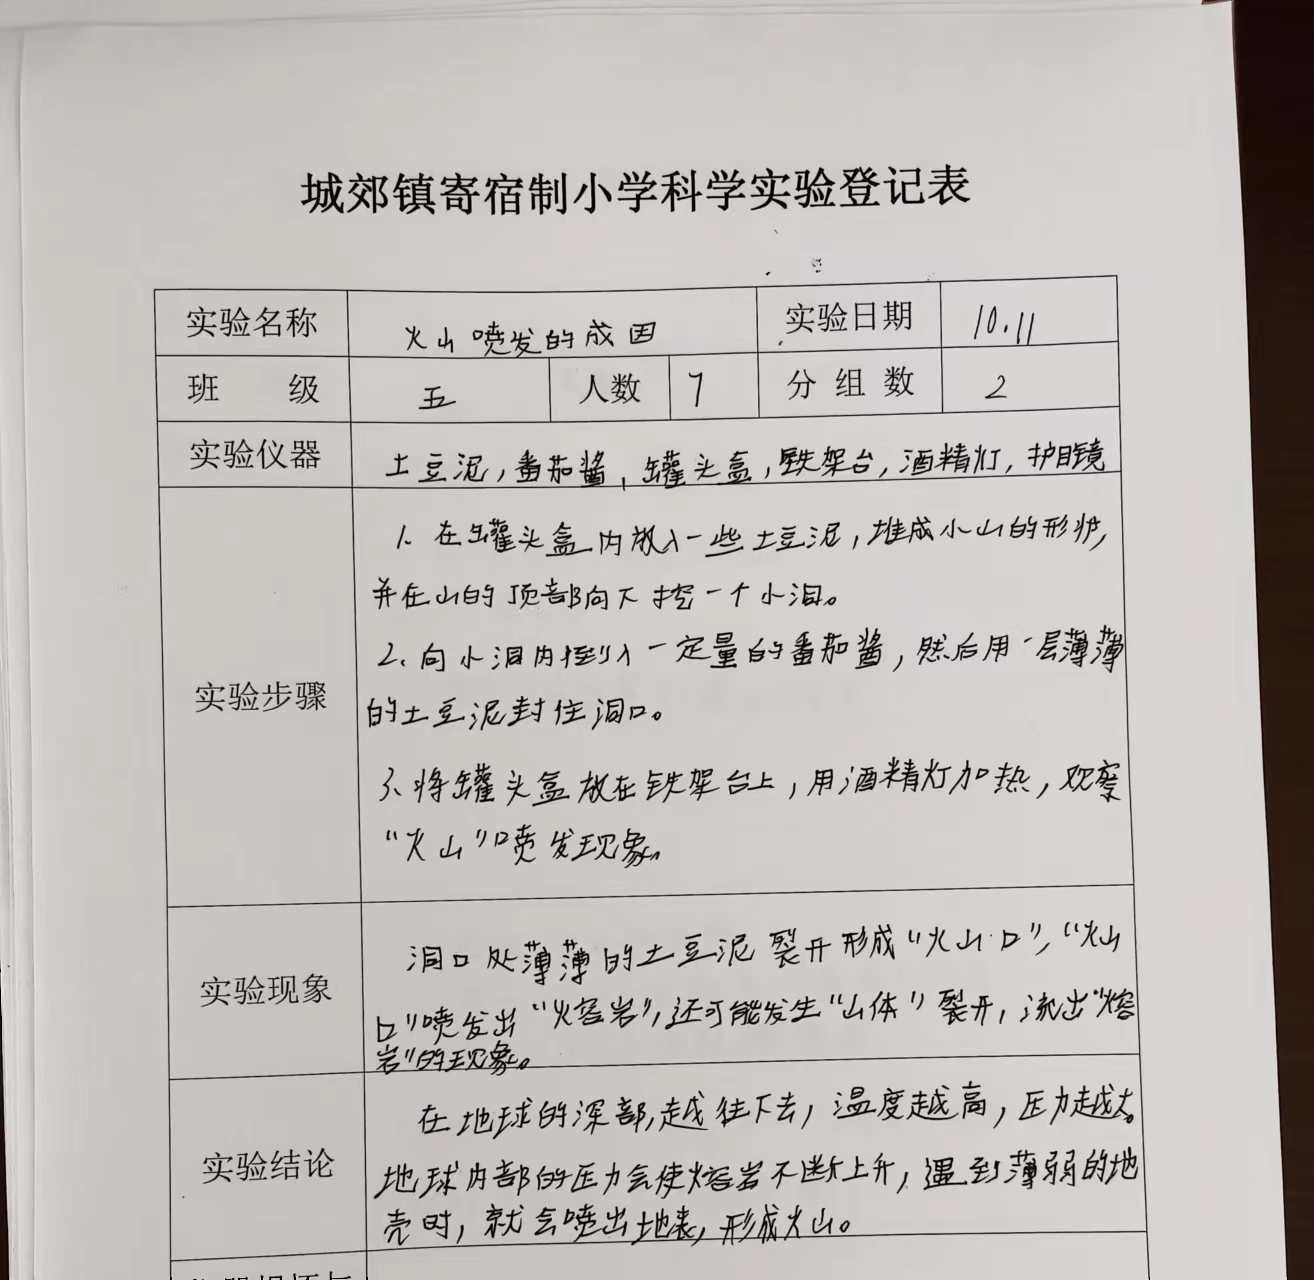 城郊镇寄宿制小学科学实验登记表
实验名称 火山喷发的成因 实验日期 10.11
班 级 五 人数 7 分组数 2
实验仪器 土豆泥，番茄酱，罐头盒，铁架台，酒精灯，护目镜
1、在罐头盒内放入一些土豆泥，堆成小山的形状，
并在山的顶部向下挖一个小洞。
2、向小洞内倒入一定量的番茄酱，然后用一层薄薄
的土豆泥封住洞口。
实验步骤
3、将罐头盒放在铁架台上，用酒精灯加热，观察
“火山”喷发现象。
洞口处薄薄的土豆泥裂开形成“火山口”，“火山
实验现象
口”喷发出“火熔岩”，还可能发生“山体”裂开，流出“熔
岩”的现象。
在地球的深部，越往下去，温度越高，压力越大。
实验结论
地球内部的压力会使熔岩不断上升，遇到薄弱的地
壳时，就会喷出地表，形成火山。